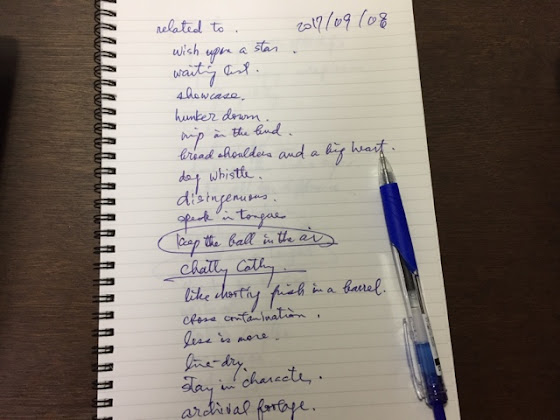 related to. 2017/09/08
wish upon a star.
waiting list.
showcase.
hunker down.
nip in the bud.
broad shoulders and a big heart.
dog whistle.
disingenuous.
speak in tongues
keep the ball in the air
chatty Cathy.
like shooting fish in a barrel.
cross contamination.
less is more.
line-dry.
stay in character.
archival footage.